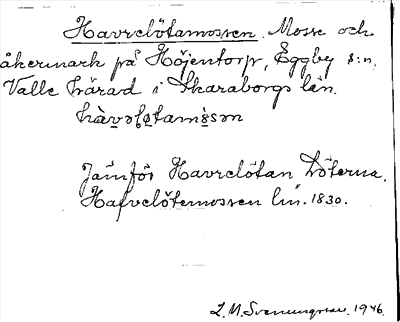 Havrelötamossen. Mosse och
åkermark på Höjentorp, Eggby s:n,
Valle härad i Skaraborgs län.
Jämför Havrelötan Löterna.
Hafvelötemossen lm. 1830.
L. M. Svenungsson. 1946.